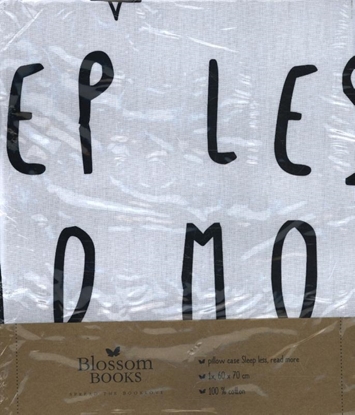 EEP LES
D MO
Blossom
BOOKS
pillow case Sleep less, read more
1x 60 x 70 cm
100 % cotton